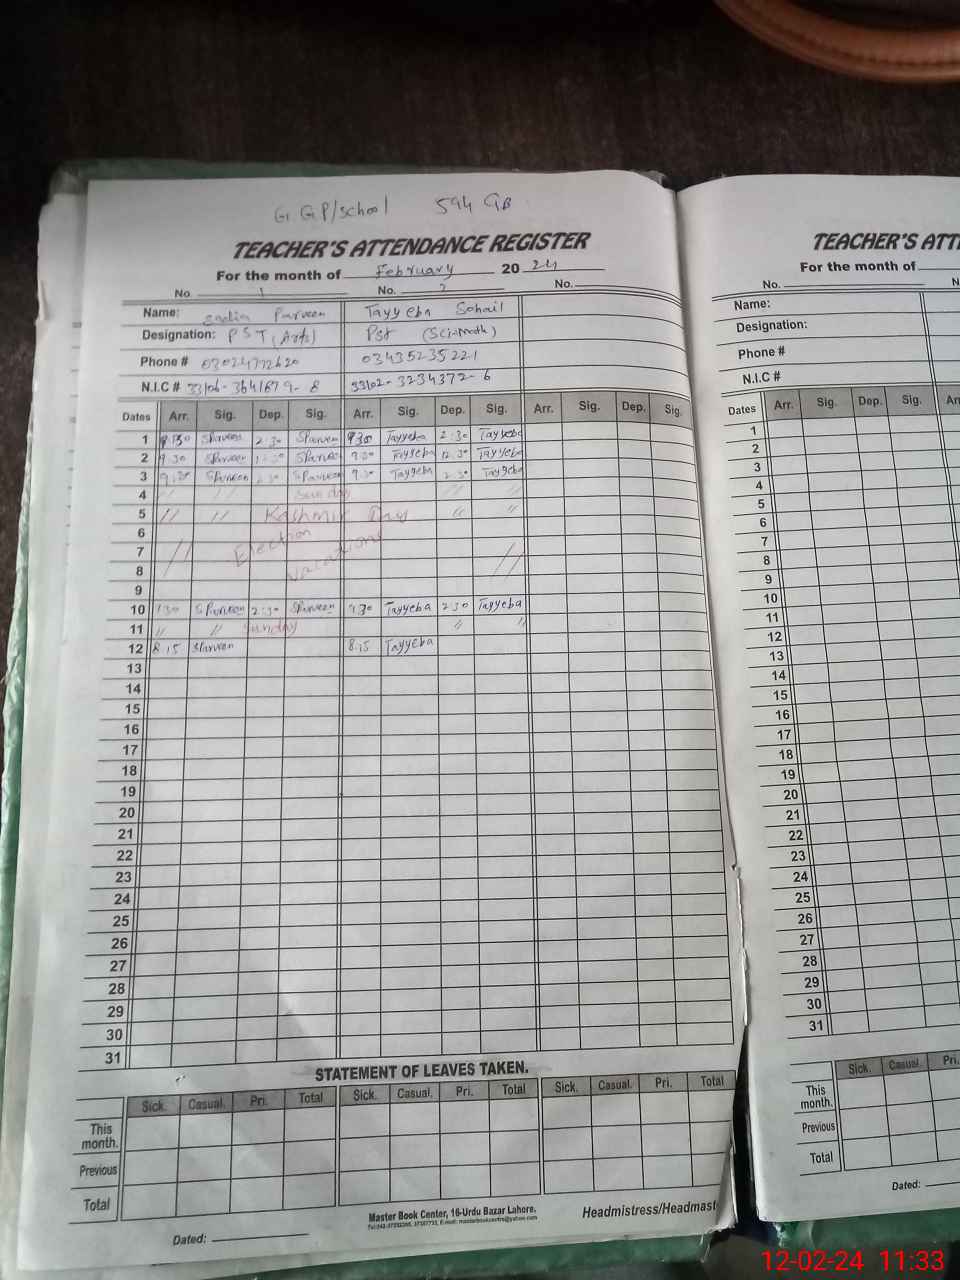 G. G P/school 594 GB
TEACHER'S ATTENDANCE REGISTER
For the month of February 20 24
No. 1 No. 2 No.
Name: Sadia Parveen Tayyeba Sohail
Designation: PST (Arts) Pst (Sci-Math)
Phone # 03435235221
N.I.C # 33102-3234372-6
Dates Arr. Sig. Dep. Sig. Arr. Sig. Dep. Sig. Arr. Sig. Dep. Sig.
1 SParveen 2:30 SParveen 9:30 Tayyeba 2:30 Tayyeba
2 9:30 SParveen SParveen 9:30 Tayyeba 12:30 Tayyeba
3 9:30 SParveen 2:30 SParveen 9:30 Tayyeba 2:30 Tayyeba
4 // // Sunday // //
5 // // Kashmir Day // //
6 Election
7 // vacations
8 //
9
10 9:30 SParveen 2:30 SParveen 9:30 Tayyeba 2:30 Tayyeba
11 // // Sunday // //
12 8:15 SParveen 8:15 Tayyeba
13
14
15
16
17
18
19
20
21
22
23
24
25
26
27
28
29
30
31
STATEMENT OF LEAVES TAKEN.
Sick. Casual. Pri. Total Sick. Casual. Pri. Total Sick. Casual. Pri. Total
This month.
Previous
Total
Master Book Center, 16-Urdu Bazar Lahore.
Dated: Headmistress/Headmast
TEACHER'S ATT
For the month of
No.
Name:
Designation:
Phone #
N.I.C #
Dates Arr. Sig. Dep. Sig.
1
2
3
4
5
6
7
8
9
10
11
12
13
14
15
16
17
18
19
20
21
22
23
24
25
26
27
28
29
30
31
Sick. Casual. Pri.
This month.
Previous
Total
Dated:
12-02-24 11:33